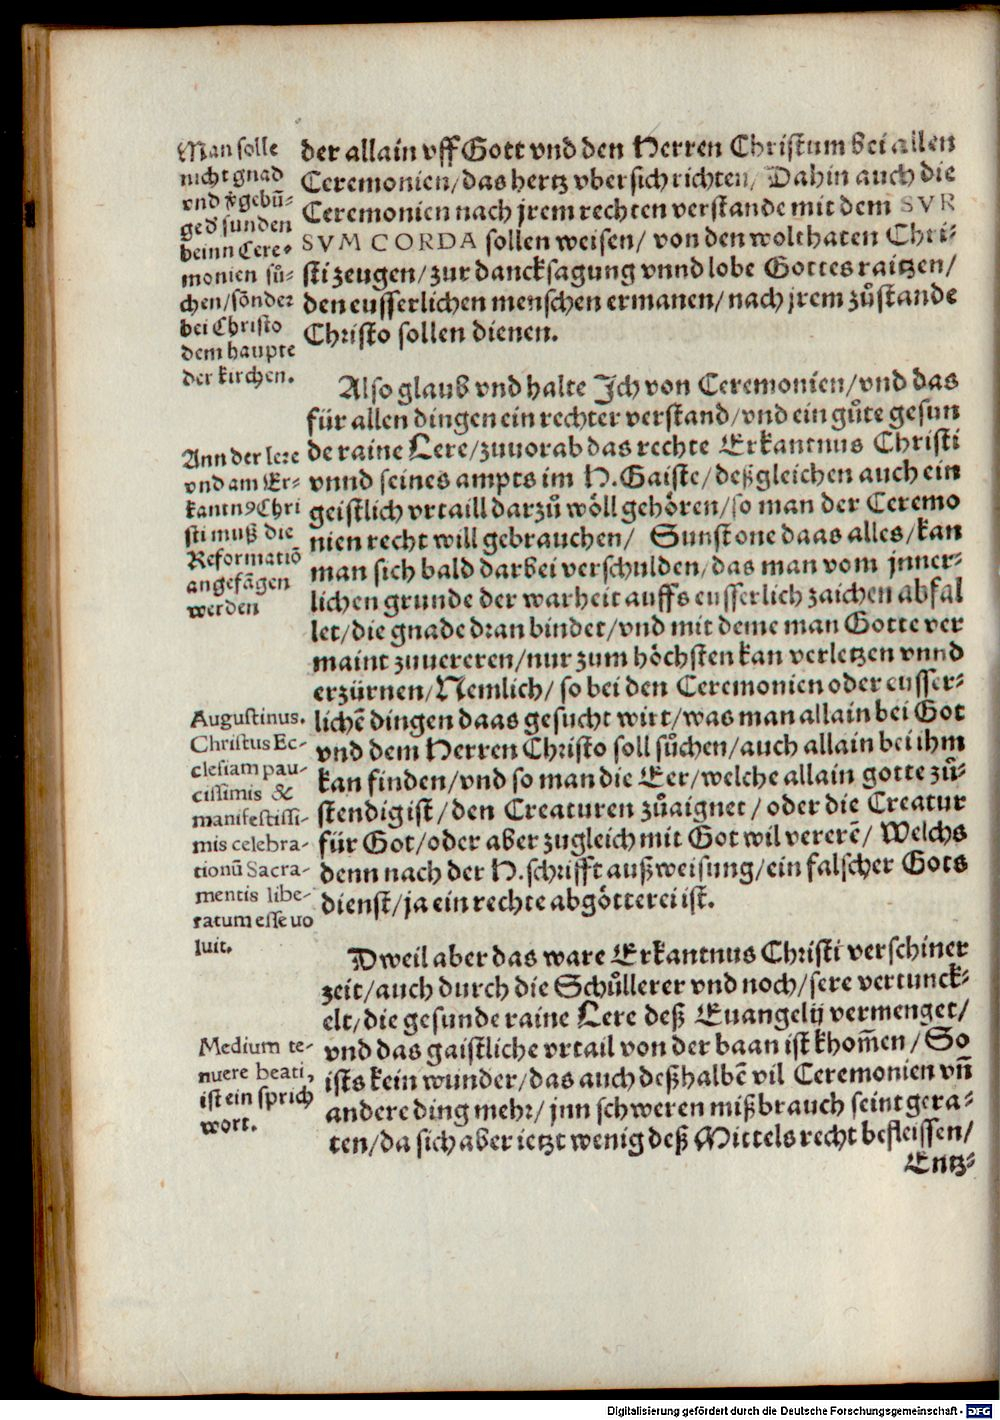 Man solle
nicht gnad
vnd v̄gebū-
ged sunden
beinn Cere-
monien sů-
chen/sōnder
bei Christo
dem haupte
der kirchen.
der allain vff Gott vnd den Herren Christum bei allen
Ceremonien/das hertz vber sich richten/ Dahin auch die
Ceremonien nach jrem rechten verstande mit dem SVR
SVM CORDA sollen weisen/ von den wolthaten Chri-
sti zeugen/zur dancksagung vnnd lobe Gottes raitzen/
den eusserlichen menschen ermanen/nach jrem zůstande
Christo sollen dienen.
Also glaub vnd halte Ich von Ceremonien/vnd das
für allen dingen ein rechter verstand/vnd ein gůte gesun
de raine Lere/zuuorab das rechte Erkantnus Christi
vnnd seines ampts im H.Gaiste/deßgleichen auch ein
geistlich vrtaill darzů wöll gehören/so man der Ceremo
nien recht will gebrauchen/ Sunst one daas alles/kan
man sich bald darbei verschulden/das man vom jnner-
lichen grunde der warheit auffs eusserlich zaichen abfal
let/die gnade dran bindet/vnd mit deme man Gotte ver
maint zuuereren/nur zum höchsten kan verletzen vnnd
erzürnen/Nemlich/so bei den Ceremonien oder eusser-
lichē dingen daas gesucht wirt/was man allain bei Got
vnd dem Herren Christo soll sůchen/auch allain bei ihm
kan finden/vnd so man die Eer/welche allain gotte zů-
stendig ist/den Creaturen zůaignet/oder die Creatur
für Got/oder aber zugleich mit Got wil vererē/ Welchs
denn nach der H.schrifft außweisung/ein falscher Gots
dienst/ja ein rechte abgötterei ist.
Ann der lere
vnd am Er-
kantnꝰ Chri
sti muß die
Reformatiō
angefāgen
werden
Augustinus.
Christus Ec-
clesiam pau-
cissimis &
manifestissi-
mis celebra-
tionū Sacra-
mentis libe-
ratum esse uo
luit.
Dweil aber das ware Erkantnus Christi verschiner
zeit/auch durch die Schůllerer vnd noch/sere vertunck-
elt/die gesunde raine Lere deß Euangelij vermenget/
vnd das gaistliche vrtail von der baan ist khom̄en/So
ists kein wunder/das auch deßhalbē vil Ceremonien vn̄
andere ding mehr/jnn schweren mißbrauch seint gera-
ten/da sich aber ietzt wenig deß Mittels recht befleissen/
Medium te-
nuere beati,
ist ein sprich
wort.
Entz-
Digitalisierung gefördert durch die Deutsche Forschungsgemeinschaft - DFG